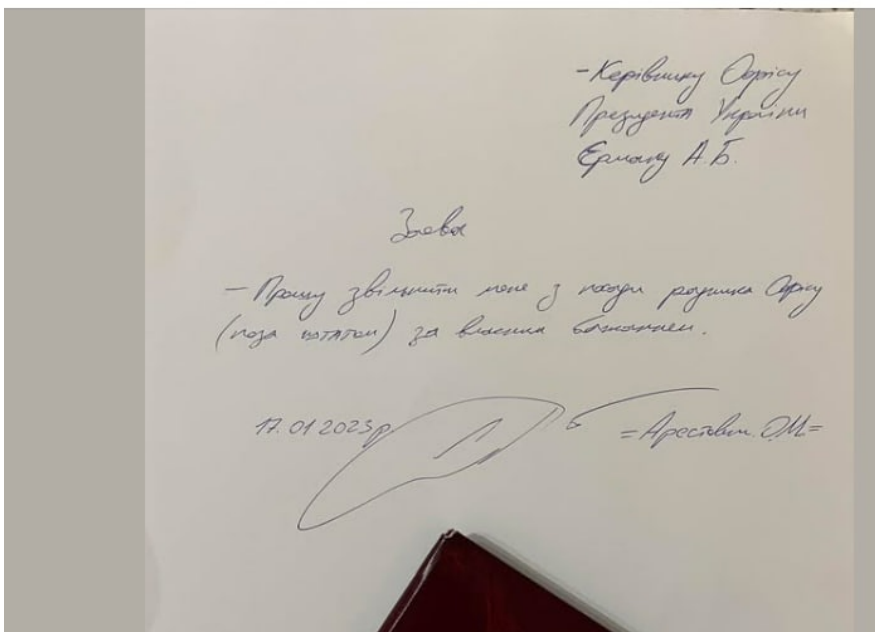 - Керівнику Офісу
Президента України
Єрмаку А.Б.
Заява
- Прошу звільнити мене з посади радника Офісу
(поза штатом) за власним бажанням.
17.01 2023р.
= Арестович О.М. =